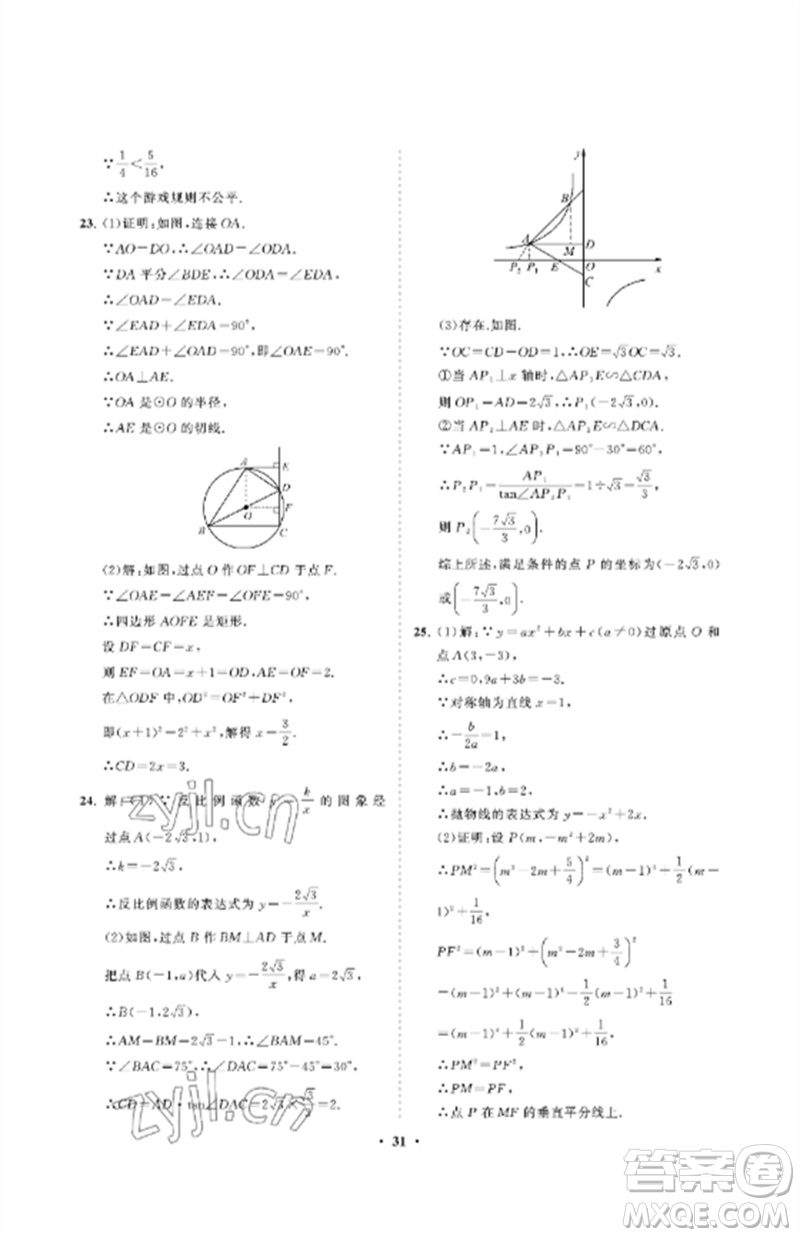 ∵1/4<5/16,
∴这个游戏规则不公平.
23. (1)证明:如图,连接OA.
∵AO=DO,∴∠OAD=∠ODA.
∵DA平分∠BDE,∴∠ODA=∠EDA,
∴∠OAD=∠EDA.
∵∠EAD+∠EDA=90°,
∴∠EAD+∠OAD=90°,即∠OAE=90°.
∴OA⊥AE.
∵OA是⊙O的半径,
∴AE是⊙O的切线.
A
E
D
O
F
B
C
(2)解:如图,过点O作OF⊥CD于点F.
∵∠OAE=∠AEF=∠OFE=90°,
∴四边形AOFE是矩形.
设DF=CF=x,
则EF=OA=x+1,OF=AE=2.
在△ODF中,OD²=OF²+DF²,
即(x+1)²=2²+x²,解得x=3/2.
∴CD=2x=3.
24. 解:(1)∵反比例函数y=k/x的图象经
过点A(-2√3,1),
∴k=-2√3,
∴反比例函数的表达式为y=-2√3/x.
(2)如图,过点B作BM⊥AD于点M.
把点B(-1,a)代入y=-2√3/x,得a=2√3,
∴B(-1,2√3).
∴AM=BM=2√3-1,∴∠BAM=45°.
∵∠BAC=75°,∴∠DAC=75°-45°=30°,
∴CD=AD·tan∠DAC=2√3×√3/3=2.
y
B
A
D
M
P₂ P₁ E O x
C
(3)存在.如图.
∵OC=CD-OD=1,∴OE=√3OC=√3.
①当AP₁⊥x轴时,△AP₁E∽△CDA,
则OP₁=AD=2√3,∴P₁(-2√3,0).
②当AP₂⊥AE时,△AP₂E∽△DCA.
∵AP₁=1,∠AP₂P₁=90°-30°=60°,
∴P₂P₁=AP₁/tan∠AP₂P₁=1÷√3=√3/3,
则P₂(-7√3/3,0).
综上所述,满足条件的点P的坐标为(-2√3,0)
或(-7√3/3,0).
25. (1)解:∵y=ax²+bx+c(a≠0)过原点O和
点A(3,-3),
∴c=0,9a+3b=-3.
∵对称轴为直线x=1,
∴-b/2a=1,
∴a=-1,b=2,
∴抛物线的表达式为y=-x²+2x.
(2)证明:设P(m,-m²+2m),
∴PM²=(m²-2m+5/4)²=(m-1)⁴+1/2(m-
1)²+1/16,
PF²=(m-1)²+(-m²+2m-3/4)²
=(m-1)²+(m-1)⁴-1/2(m-1)²+1/16
=(m-1)⁴+1/2(m-1)²+1/16,
∴PM²=PF²,
∴PM=PF,
∴点P在MF的垂直平分线上.
• 31 •
zyjl.cn
zyjl.cn
答案圈
MXQE.COM